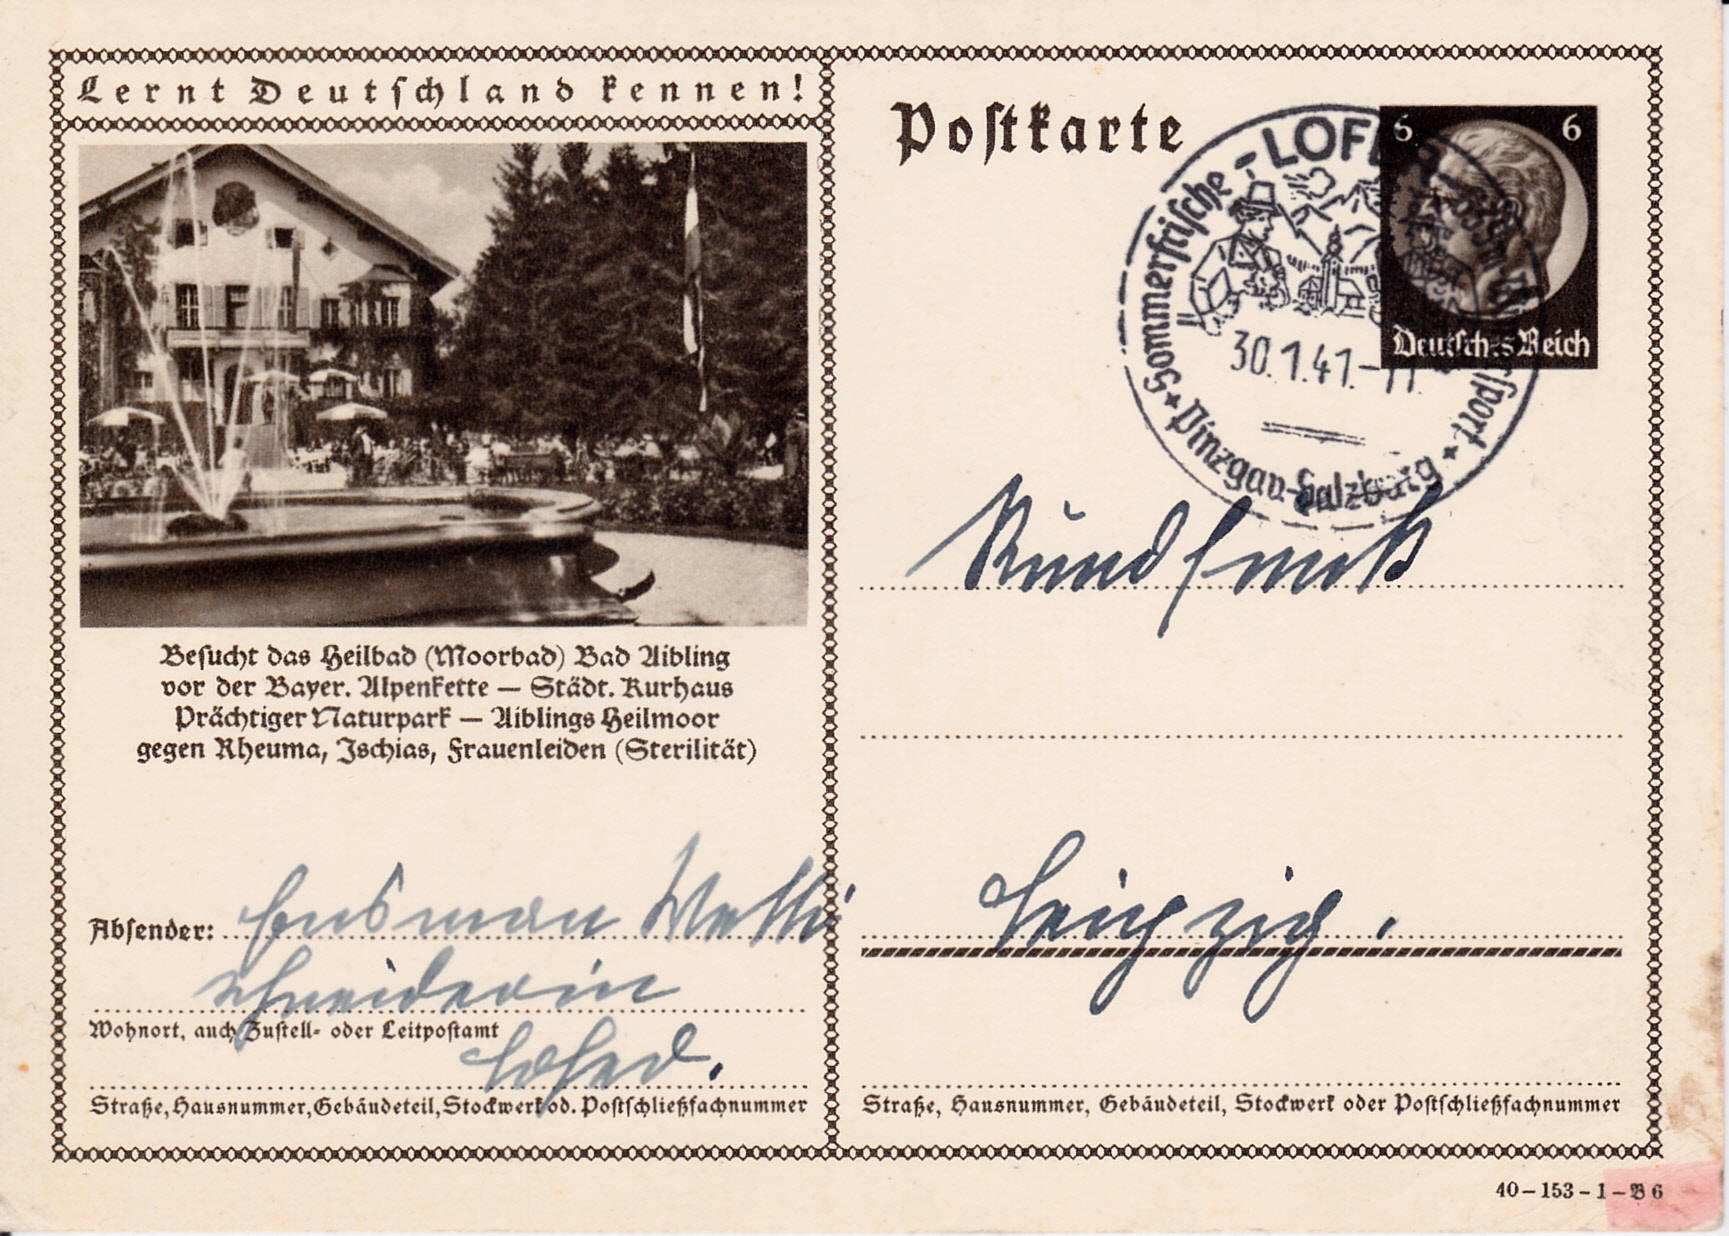 Lernt Deutschland kennen!
Besucht das Heilbad (Moorbad) Bad Aibling
vor der Bayer. Alpenkette – Städt. Kurhaus
Prächtiger Naturpark – Aiblings Heilmoor
gegen Rheuma, Ischias, Frauenleiden (Sterilität)
Absender:
Schneiderin
Wohnort, auch Zustell- oder Leitpostamt
Lofer.
Straße, Hausnummer, Gebäudeteil, Stockwerk od. Postschließfachnummer
Postkarte
6 6
Deutsches Reich
Sommerfrische - LOFER
30.1.41.-11
* Pinzgau-Salzburg *
Rundfunk
Leipzig.
Straße, Hausnummer, Gebäudeteil, Stockwerk oder Postschließfachnummer
40–153–1–B 6